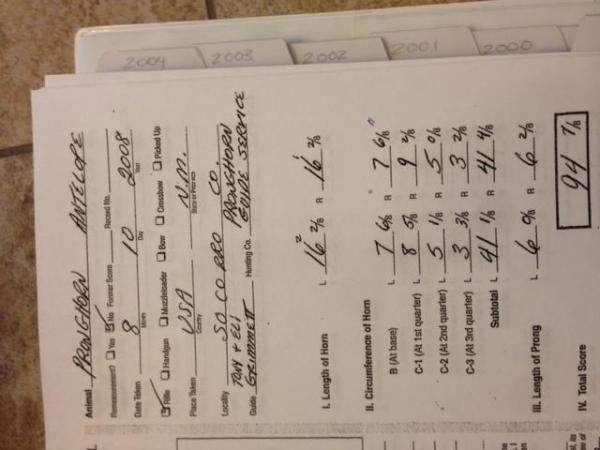 2004 2003 2002 2001 2000
Animal PRONGHORN ANTELOPE
Remeasurement? Yes No Former Score Record No.
Date Taken 8 10 2008
Month Day Year
Rifle Handgun Muzzleloader Bow Crossbow Picked Up
Place Taken USA N.M.
Country State or Province
Locality SOCORRO CO.
TONY & ELI PRONGHORN
Guide GRIMMETT Hunting Co. GUIDE SERVICE
I. Length of Horn L 16 2/8 R 16 2/8
II. Circumference of Horn
B (At base) L 7 6/8 R 7 6/8
C-1 (At 1st quarter) L 8 5/8 R 9 2/8
C-2 (At 2nd quarter) L 5 1/8 R 5 0/8
C-3 (At 3rd quarter) L 3 3/8 R 3 2/8
Subtotal L 41 1/8 R 41 4/8
III. Length of Prong L 6 0/8 R 6 2/8
IV. Total Score 94 7/8